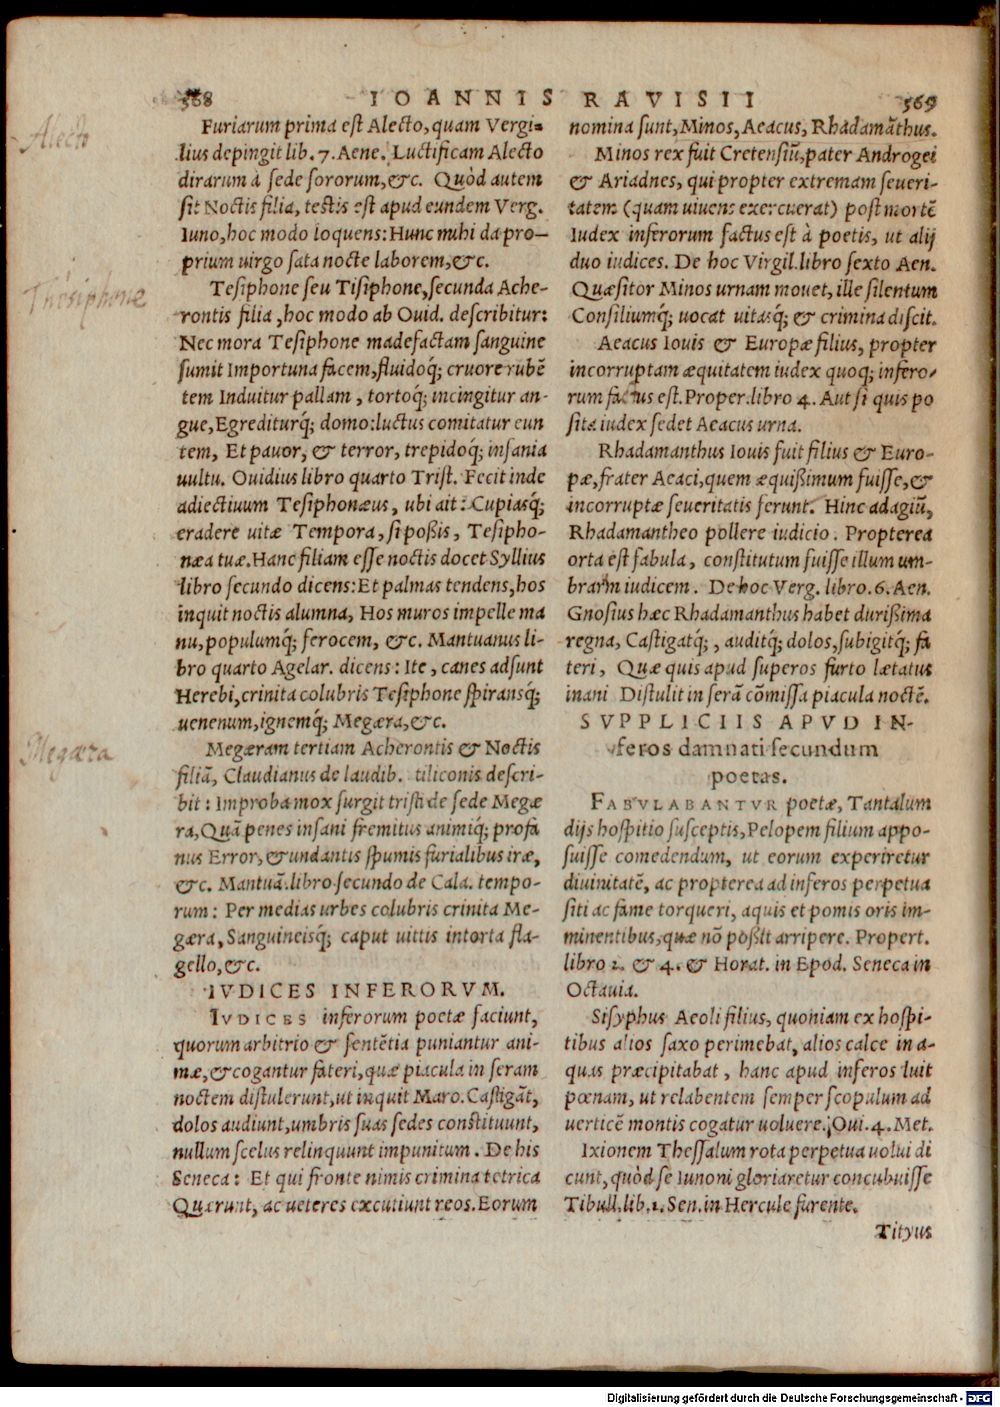 568 IOANNIS RAVISII 569
Alecto
Furiarum prima est Alecto, quam Vergi-
lius depingit lib. 7. Aene. Luctificam Alecto
dirarum à sede sororum, &c. Quòd autem
sit Noctis filia, testis est apud eundem Verg.
Iuno, hoc modo loquens: Hunc mihi da pro-
prium uirgo sata nocte laborem, &c.
Thesiphone
Tesiphone seu Tisiphone, secunda Ache-
rontis filia, hoc modo ab Ouid. describitur:
Nec mora Tesiphone madefactam sanguine
sumit Importuna facem, fluidoq́; cruore rubē
tem Induitur pallam, tortoq́; incingitur an-
gue, Egrediturq́; domo: luctus comitatur eun
tem, Et pauor, & terror, trepidoq́; insania
uultu. Ouidius libro quarto Trist. Fecit inde
adiectiuum Tesiphonæus, ubi ait: Cupiasq́;
eradere uitæ Tempora, si poßis, Tesipho-
næa tuæ. Hanc filiam esse noctis docet Syllius
libro secundo dicens: Et palmas tendens, hos
inquit noctis alumna, Hos muros impelle ma
nu, populumq́; ferocem, &c. Mantuanus li-
bro quarto Agelar. dicens: Ite, canes adsunt
Herebi, crinita colubris Tesiphone spiransq́;
uenenum, ignemq́; Megæra, &c.
Megæra
Megæram tertiam Acherontis & Noctis
filiā, Claudianus de laudib. tiliconis descri-
bit: Improba mox surgit tristi de sede Megæ
ra, Quā penes insani fremitus animiq́; profa
nus Error, & undantis spumis furialibus iræ,
&c. Mantuā. libro secundo de Cala. tempo-
rum: Per medias urbes colubris crinita Me-
gæra, Sanguineisq́; caput uittis intorta fla-
gello, &c.
IVDICES INFERORVM.
IVDICES inferorum poetæ faciunt,
quorum arbitrio & sentētia puniantur ani-
mæ, & cogantur fateri, quæ piacula in seram
noctem distulerunt, ut inquit Maro. Castigāt,
dolos audiunt, umbris suas sedes constituunt,
nullum scelus relinquunt impunitum. De his
Seneca: Et qui fronte nimis crimina tetrica
Quærunt, ac ueteres excutiunt reos. Eorum
nomina sunt, Minos, Aeacus, Rhadamāthus.
Minos rex fuit Cretensiū, pater Androgei
& Ariadnes, qui propter extremam seueri-
tatem (quam uiuens exercuerat) post mortē
Iudex inferorum factus est à poetis, ut alij
duo iudices. De hoc Virgil. libro sexto Aen.
Quæsitor Minos urnam mouet, ille silentum
Consiliumq́; uocat uitasq́; & crimina discit.
Aeacus Iouis & Europæ filius, propter
incorruptam æquitatem iudex quoq́; infero-
rum factus est. Proper. libro 4. Aut si quis po
sita iudex sedet Aeacus urna.
Rhadamanthus Iouis fuit filius & Euro-
pæ, frater Aeaci, quem æquißimum fuisse, &
incorruptæ seueritatis ferunt. Hinc adagiū,
Rhadamantheo pollere iudicio. Propterea
orta est fabula, constitutum fuisse illum um-
brarū iudicem. De hoc Verg. libro. 6. Aen.
Gnosius hæc Rhadamanthus habet durißima
regna, Castigatq́;, auditq́; dolos, subigitq́; fa
teri, Quæ quis apud superos furto lætatus
inani Distulit in serā cōmissa piacula noctē.
SVPPLICIIS APVD IN-
feros damnati secundum
poetas.
FABVLABANTVR poetæ, Tantalum
dijs hospitio susceptis, Pelopem filium appo-
suisse comedendum, ut eorum experiretur
diuinitatē, ac propterea ad inferos perpetua
siti ac fame torqueri, aquis et pomis oris im-
minentibus, quæ nō poßit arripere. Propert.
libro 2. & 4. & Horat. in Epod. Seneca in
Octauia.
Sisyphus Aeoli filius, quoniam ex hospi-
tibus alios saxo perimebat, alios calce in a-
quas præcipitabat, hanc apud inferos luit
pœnam, ut relabentem semper scopulum ad
uerticē montis cogatur uoluere. Oui. 4. Met.
Ixionem Thessalum rota perpetua uolui di
cunt, quòd se Iunoni gloriaretur concubuisse
Tibull. lib. 1. Sen. in Hercule furente.
Tityus
Digitalisierung gefördert durch die Deutsche Forschungsgemeinschaft - DFG